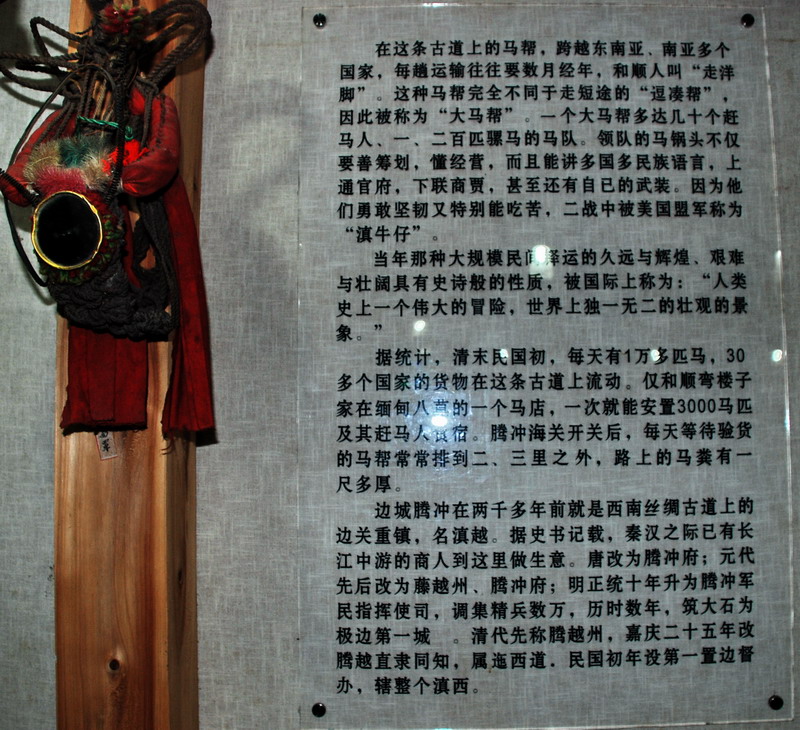 在这条古道上的马帮，跨越东南亚、南亚多个
国家，每趟运输往往要数月经年，和顺人叫“走洋
脚”。这种马帮完全不同于走短途的“逗凑帮”，
因此被称为“大马帮”。一个大马帮多达几十个赶
马人、一、二百匹骡马的马队。领队的马锅头不仅
要善筹划，懂经营，而且能讲多国多民族语言，上
通官府，下联商贾，甚至还有自己的武装。因为他
们勇敢坚韧又特别能吃苦，二战中被美国盟军称为
“滇牛仔”。
当年那种大规模民间驿运的久远与辉煌、艰难
与壮阔具有史诗般的性质，被国际上称为：“人类
史上一个伟大的冒险，世界上独一无二的壮观的景
象。”
据统计，清末民国初，每天有1万多匹马，30
多个国家的货物在这条古道上流动。仅和顺弯楼子
家在缅甸八莫的一个马店，一次就能安置3000马匹
及其赶马人食宿。腾冲海关开关后，每天等待验货
的马帮常常排到二、三里之外，路上的马粪有一
尺多厚。
边城腾冲在两千多年前就是西南丝绸古道上的
边关重镇，名滇越。据史书记载，秦汉之际已有长
江中游的商人到这里做生意。唐改为腾冲府；元代
先后改为藤越州、腾冲府；明正统十年升为腾冲军
民指挥使司，调集精兵数万，历时数年，筑大石为
极边第一城 。清代先称腾越州，嘉庆二十五年改
腾越直隶同知，属迤西道．民国初年设第一置边督
办，辖整个滇西。